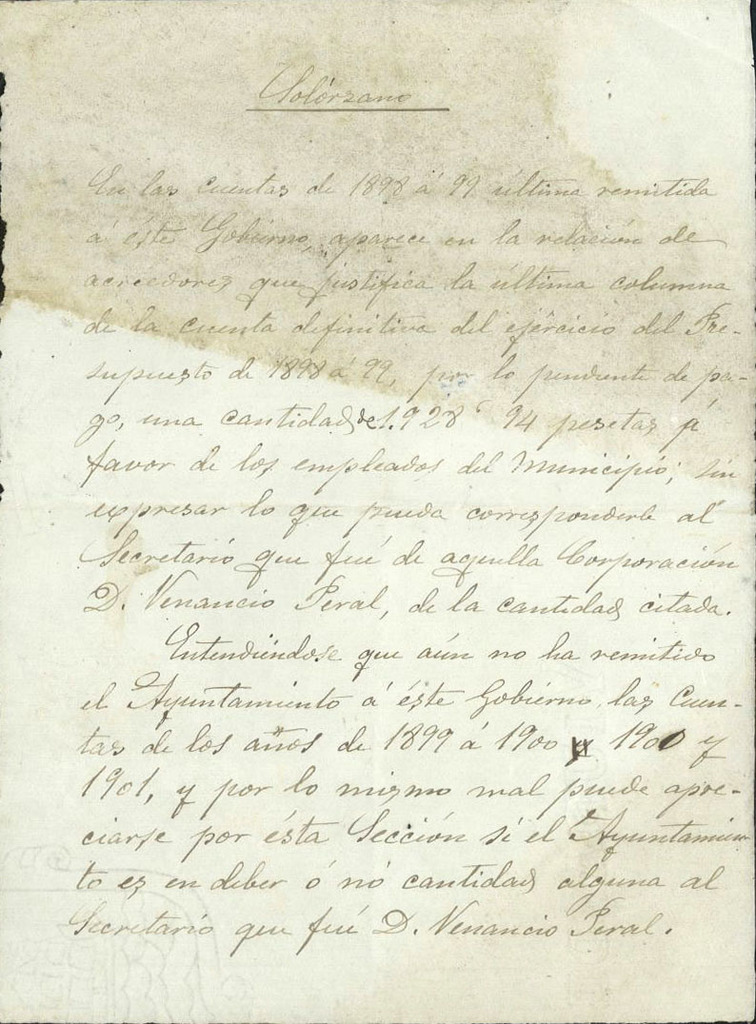 Solórzano
En las cuentas de 1898 á 99 última remitida
á éste Gobierno, aparece en la relación de
acreedores que justifica la última columna
de la cuenta definitiva del ejercicio del Pre-
supuesto de 1898 á 99, por lo pendiente de pa-
go, una cantidad de 1.928'94 pesetas á
favor de los empleados del Municipio; sin
expresar lo que pueda corresponderle al
Secretario que fué de aquella Corporación
D. Venancio Peral, de la cantidad citada.
Entendiéndose que aún no ha remitido
el Ayuntamiento á éste Gobierno, las Cuen-
tas de los años de 1899 á 1900 y 1900 y
1901, y por lo mismo mal puede apre-
ciarse por ésta Sección si el Ayuntamien-
to es en deber ó nó cantidad alguna al
Secretario que fué D. Venancio Peral.